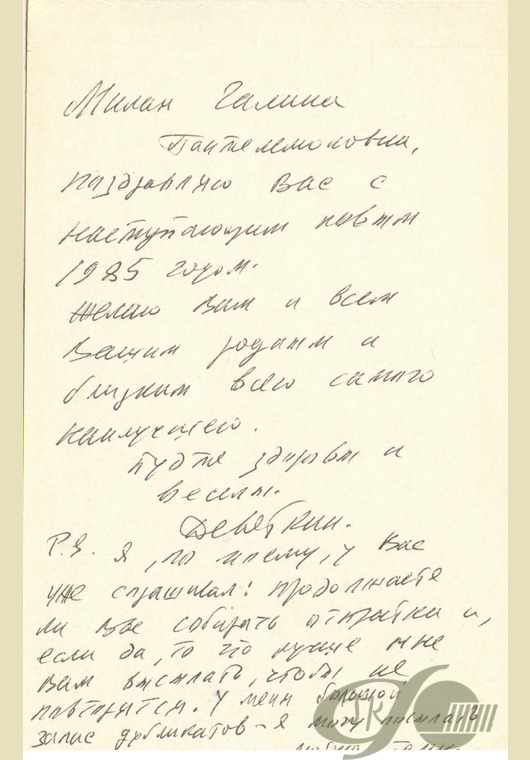 Милая Галина
Пантелемоновна,
поздравляю Вас с
наступающим новым
1985 годом.
Желаю Вам и всем
Вашим родным и
близким всего самого
наилучшего.
Будте здоровы и
веселы.
Девяткин.
P.S. Я, по моему, у Вас
уже спрашивал: продолжаете
ли Вы собирать открытки и,
если да, то что лучше мне
Вам высылать, чтобы не
повторятся. У меня большой
запас дубликатов - я могу посылать